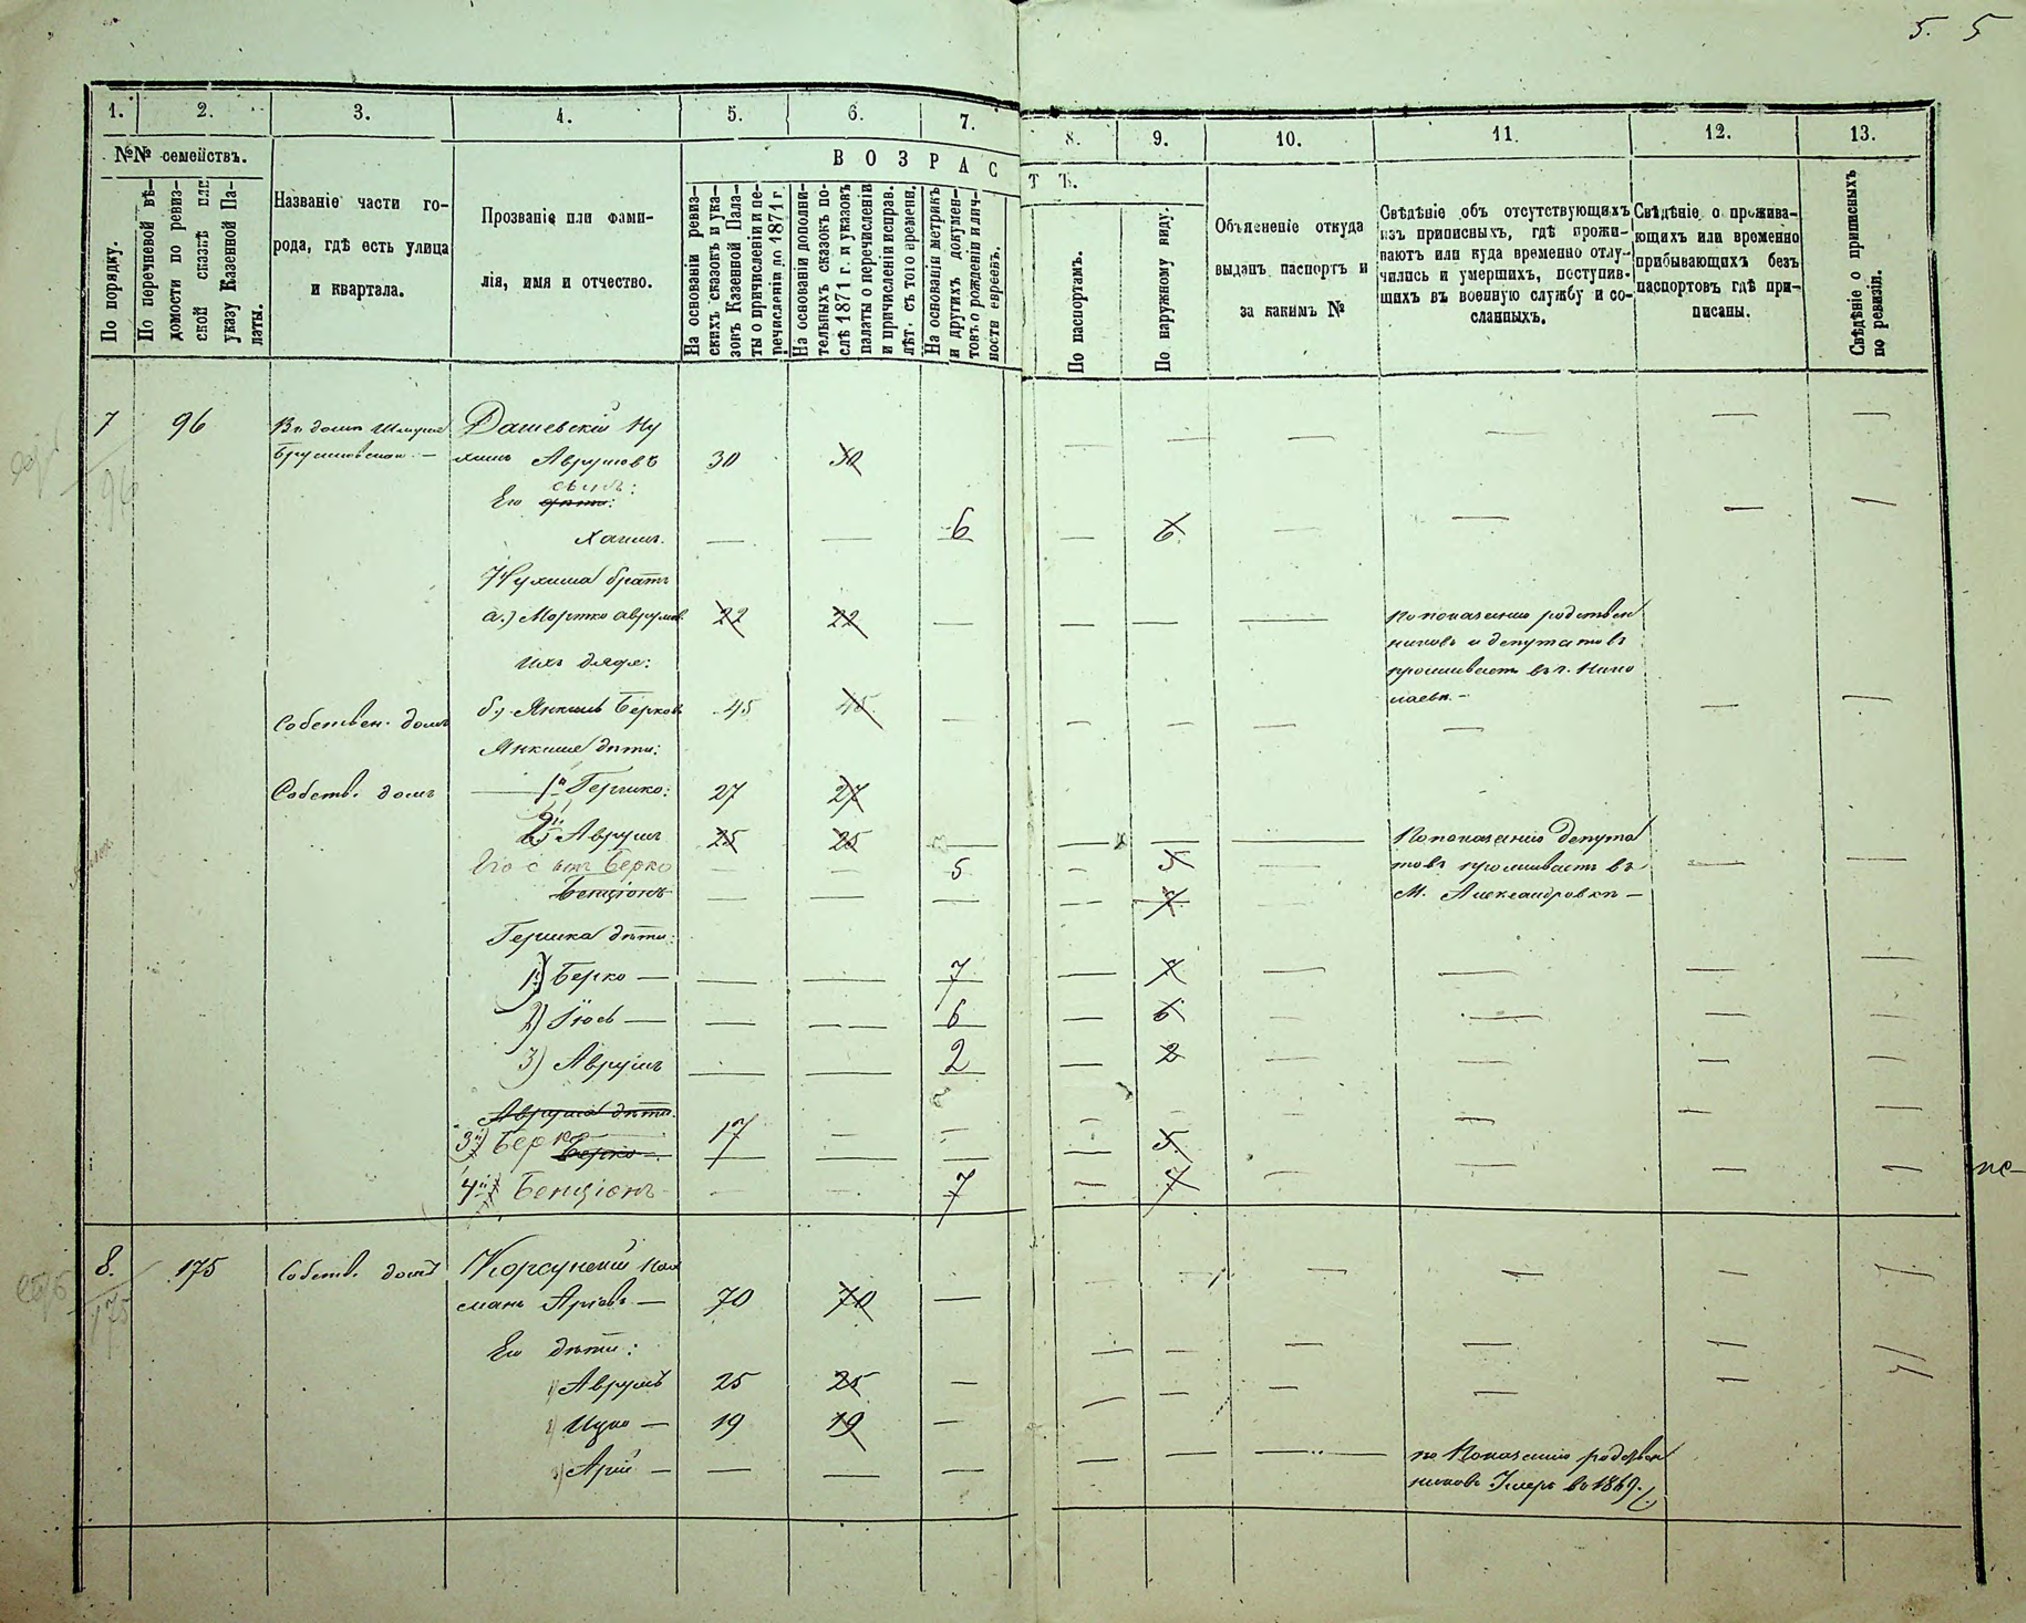 5. 5
1. 2. 3. 4. 5. 6. 7. 8. 9. 10. 11. 12. 13.
№№ семействъ.
В О З Р А С Т Ъ.
По порядку.
По перечневой вѣ-
домости по ревиз-
ской сказкѣ или
указу Казенной Па-
латы.
Названіе части го-
рода, гдѣ есть улица
и квартала.
Прозваніе или фами-
лія, имя и отчество.
На основаніи ревиз-
скихъ сказокъ и ука-
зовъ Казенной Пала-
ты о причисленіи и пе-
речисленіи до 1871 г.
На основаніи дополни-
тельныхъ сказокъ по-
слѣ 1871 г. и указовъ
палаты о перечисленіи
и причисленіи исправ.
лѣт. съ того времени.
На основаніи метрикъ
и другихъ докумен-
товъ о рожденіи и лич-
ности евреевъ.
По паспортамъ.
По наружному виду.
Объясненіе откуда
выданъ паспортъ и
за какимъ №
Свѣдѣніе объ отсутствующихъ
изъ приписныхъ, гдѣ прожи-
ваютъ или куда временно отлу-
чились и умершихъ, поступив-
шихъ въ военную службу и со-
сланныхъ.
Свѣдѣніе о прожива-
ющихъ или временно
прибывающихъ безъ
паспортовъ гдѣ при-
писаны.
Свѣдѣніе о приписныхъ
по ревизіи.
7 96 Въ домѣ Дашевскій Ну
химъ Аврумовъ 30 30
сынъ:
Его дѣти:
Хаимъ. — — 6 — 6 —
Нухима братъ
а.) Мортко Аврумов. 22 22 — — — — По показанію родствен
никовъ и депутатовъ
Ихъ дядя: проживаетъ въ г. Нико
лаевѣ. —
Собствен. домъ б.) Янкель Берков. 45 45 — — — —
Янкеля дѣти:
Собств. домъ 1й Гершко: 27 27
2й Аврумъ 25 25 — — — По показанію депута
Его сынъ Берко — — 5 — 5 — товъ проживаетъ въ
Бенціонъ — — — — 7 М. Александровкѣ —
Гершка дѣти:
1) Берко — — — 7 — 7 — — — —
2) Іось — — — 6 — 6 — — — —
3) Аврумъ — — 2 — 2 — — — —
Аврума дѣти:
3й Берко Берко 17 — — — 5
4й Бенціонъ — — 7 — 7 — — — —
8. 175 Собств. домъ Корсунскій Кал
манъ Аріовъ — 70 70 —
Его дѣти:
1) Аврумъ 25 25 —
2) Ицко — 19 19 —
3) Арій — — — — — — — по Показанію родствен
никовъ Умеръ въ 1869 г.
96
175